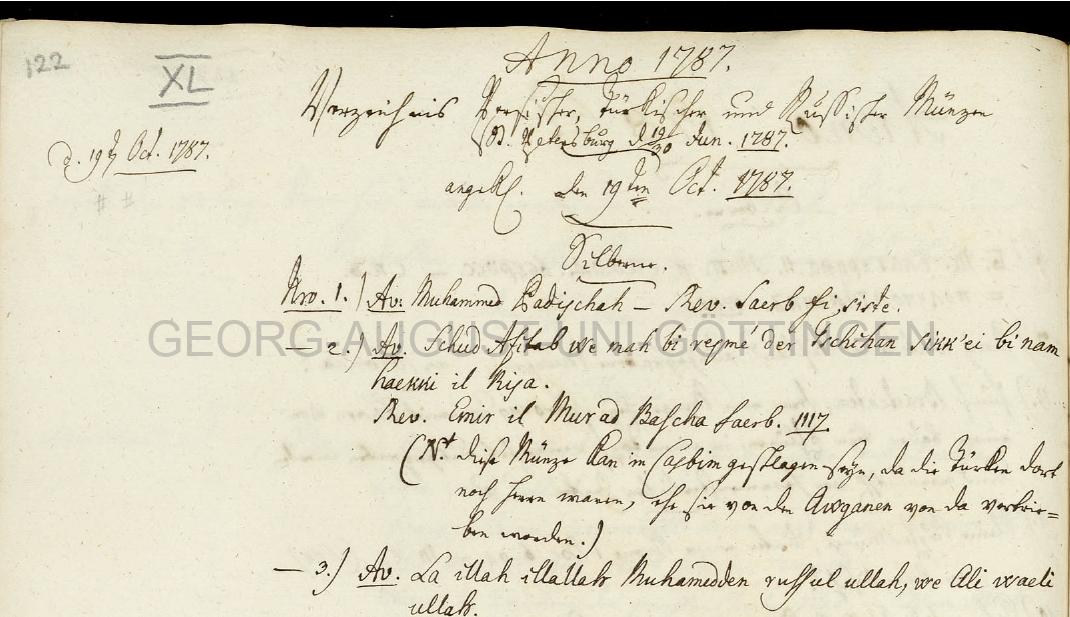 122
XL
Anno 1787.
Verzeichnis Persischer, Türkischer und Russischer Münzen
St. Petersburg d. 19/30 Jun. 1787.
d. 19 Oct. 1787.
den 19ten Oct. 1787.
Silberne.
Nro. 1.) Av: Muhammed Padischah – Rev. Saerb fi, siste.
— 2.) Av. Schud Afitab we mah bi rejmé der Tschihan sikk'ei bi nam
haekki il Risa.
Rev. Emir il Murad Bascha saerb. 1117.
(Nt. diese Münze kan in Casbim geschlagen seyn, da die Türken dort
noch Herrn waren, ehe sie von den Awganen von da vertrie=
ben worden.)
— 3.) Av. La illah illallah Muhamedden russul ullah, we Ali waeli
ullah.
GEORG-AUGUST-UNI GÖTTINGEN